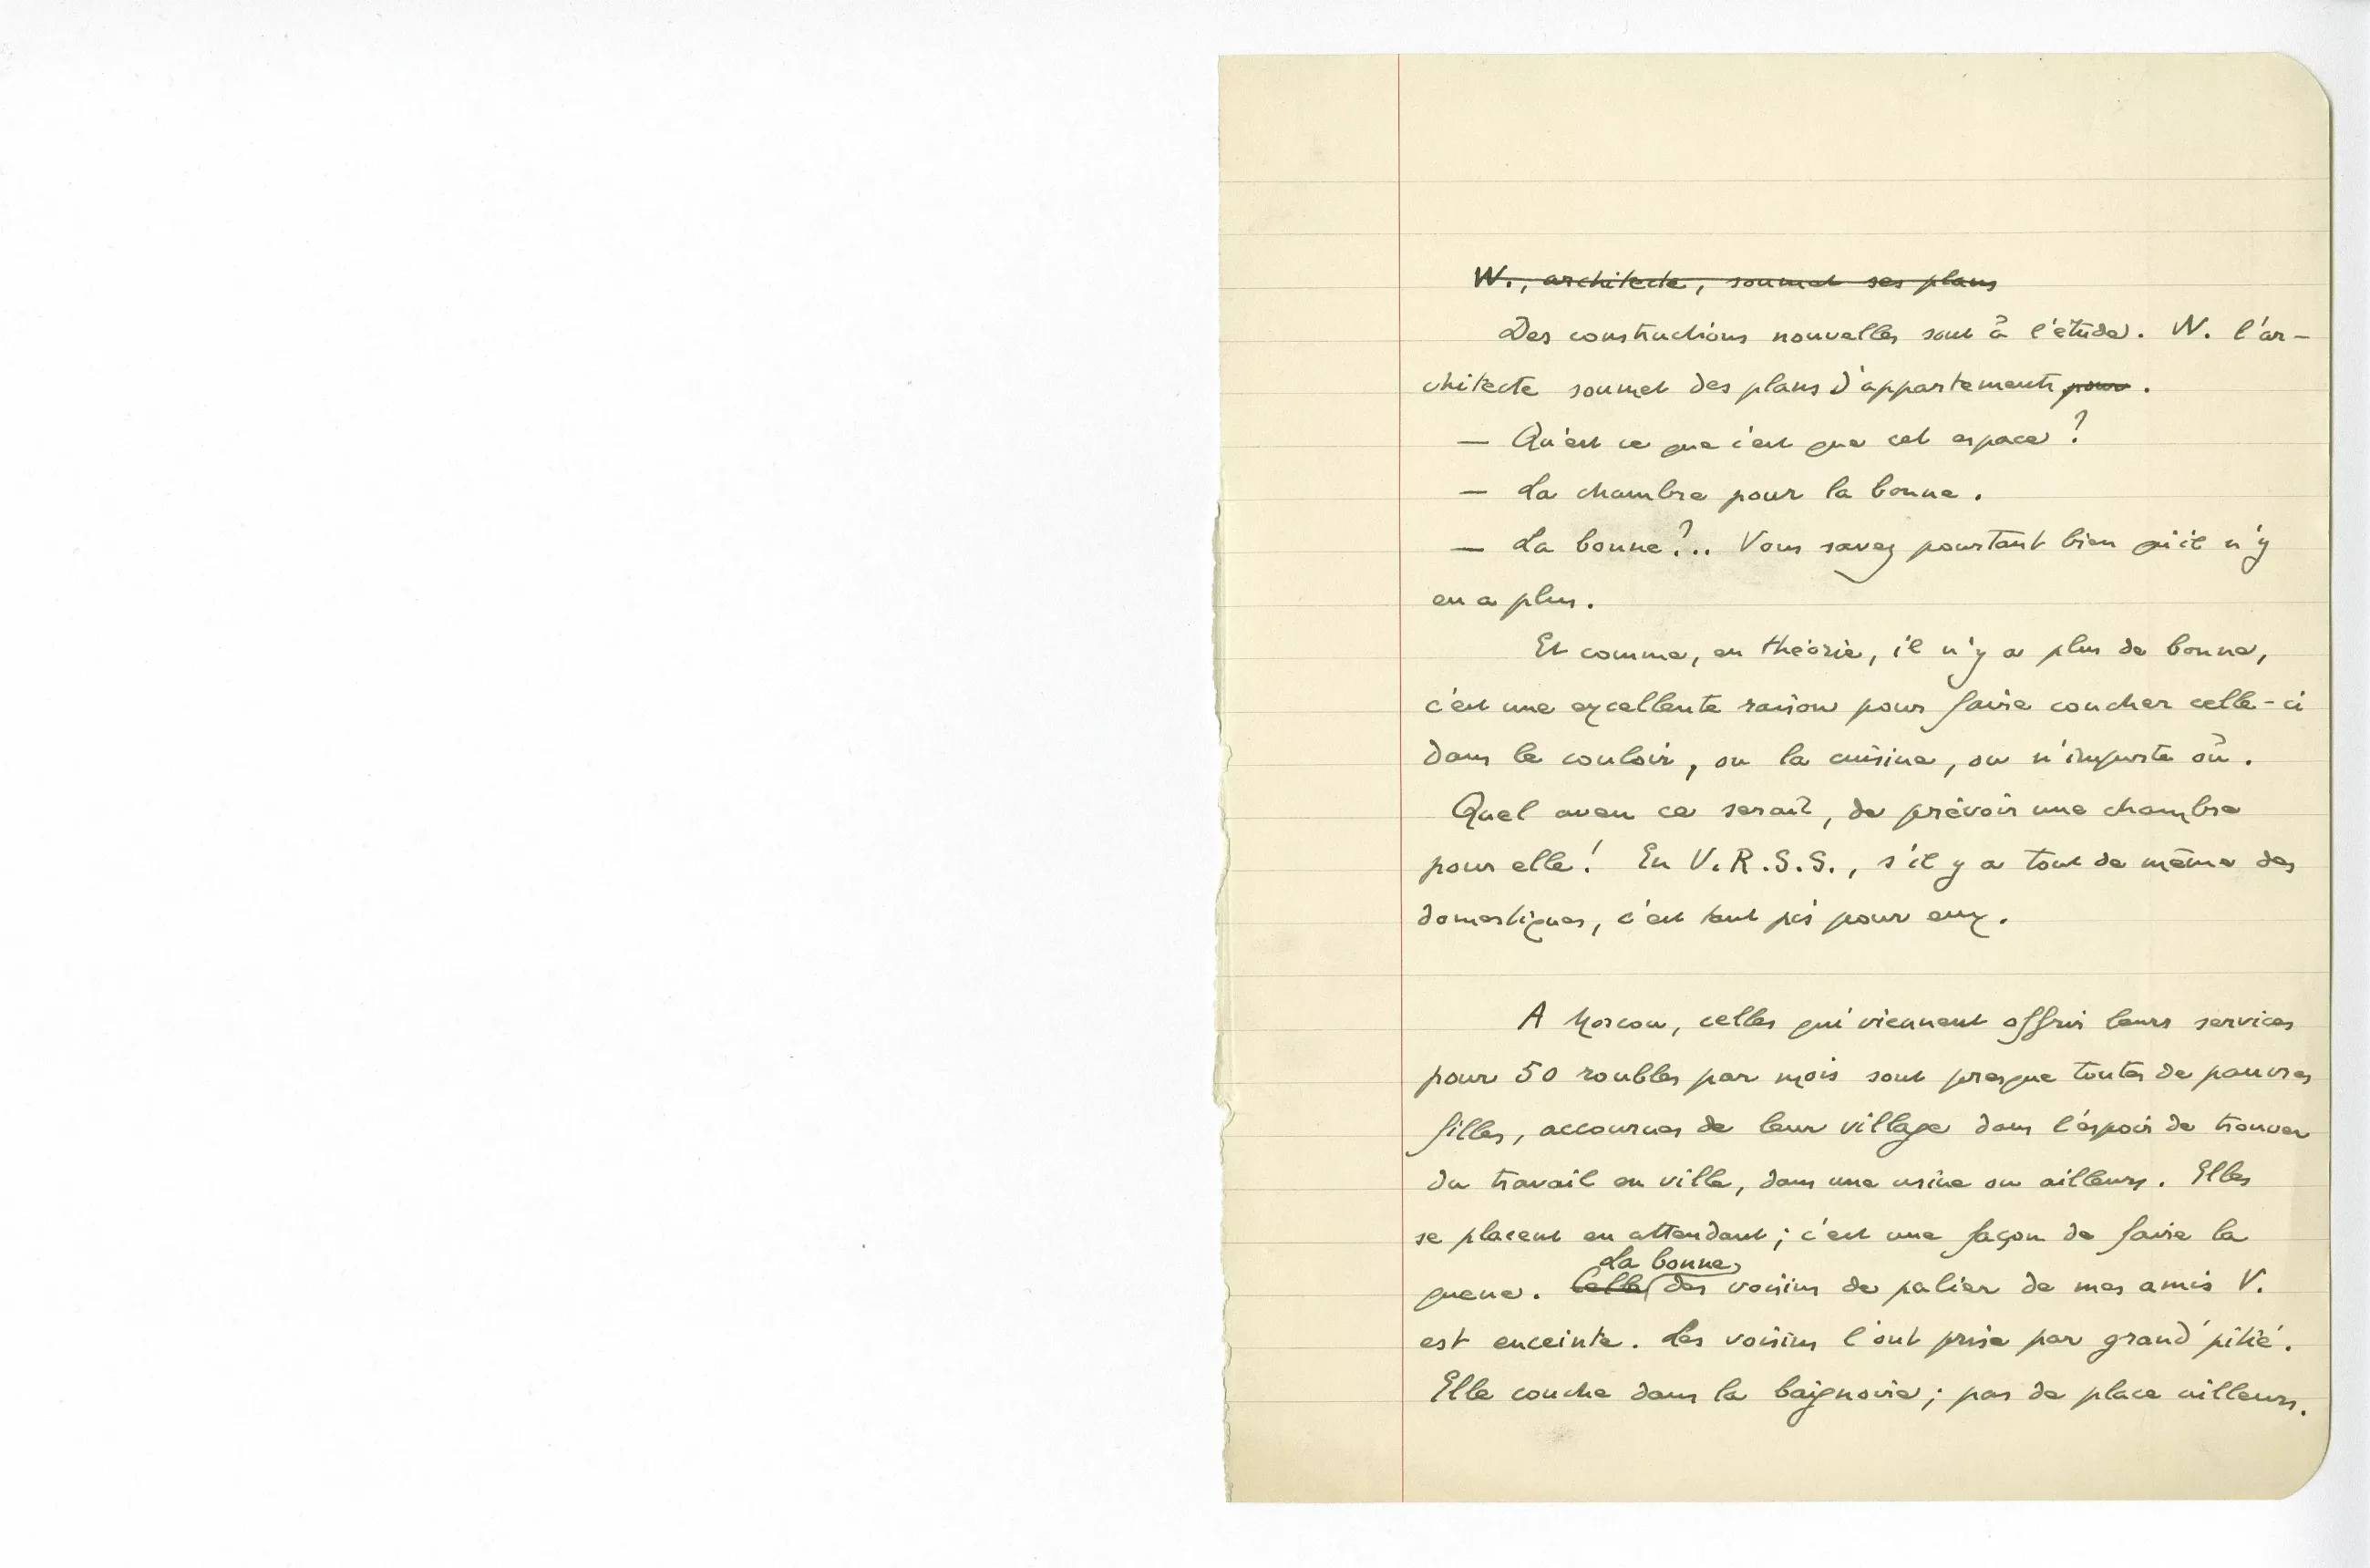 W., architecte, soumet ses plans
Des constructions nouvelles sont à l'étude. W. l'ar-
chitecte soumet des plans d'appartements pour.
— Qu'est ce que c'est que cet espace ?
— La chambre pour la bonne.
— La bonne ?.. Vous savez pourtant bien qu'il n'y
en a plus.
Et comme, en théorie, il n'y a plus de bonne,
c'est une excellente raison pour faire coucher celle-ci
dans le couloir, ou la cuisine, ou n'importe où.
Quel aveu ce serait, de prévoir une chambre
pour elle ! En U.R.S.S., s'il y a tout de même des
domestiques, c'est tant pis pour eux.
A Moscou, celles qui viennent offrir leurs services
pour 50 roubles par mois sont presque toutes de pauvres
filles, accourues de leur village dans l'espoir de trouver
du travail en ville, dans une usine ou ailleurs. Elles
se placent en attendant ; c'est une façon de faire la
La bonne
queue. Celle des voisins de palier de mes amis V.
est enceinte. Les voisins l'ont prise par grand'pitié.
Elle couche dans la baignoire ; pas de place ailleurs.